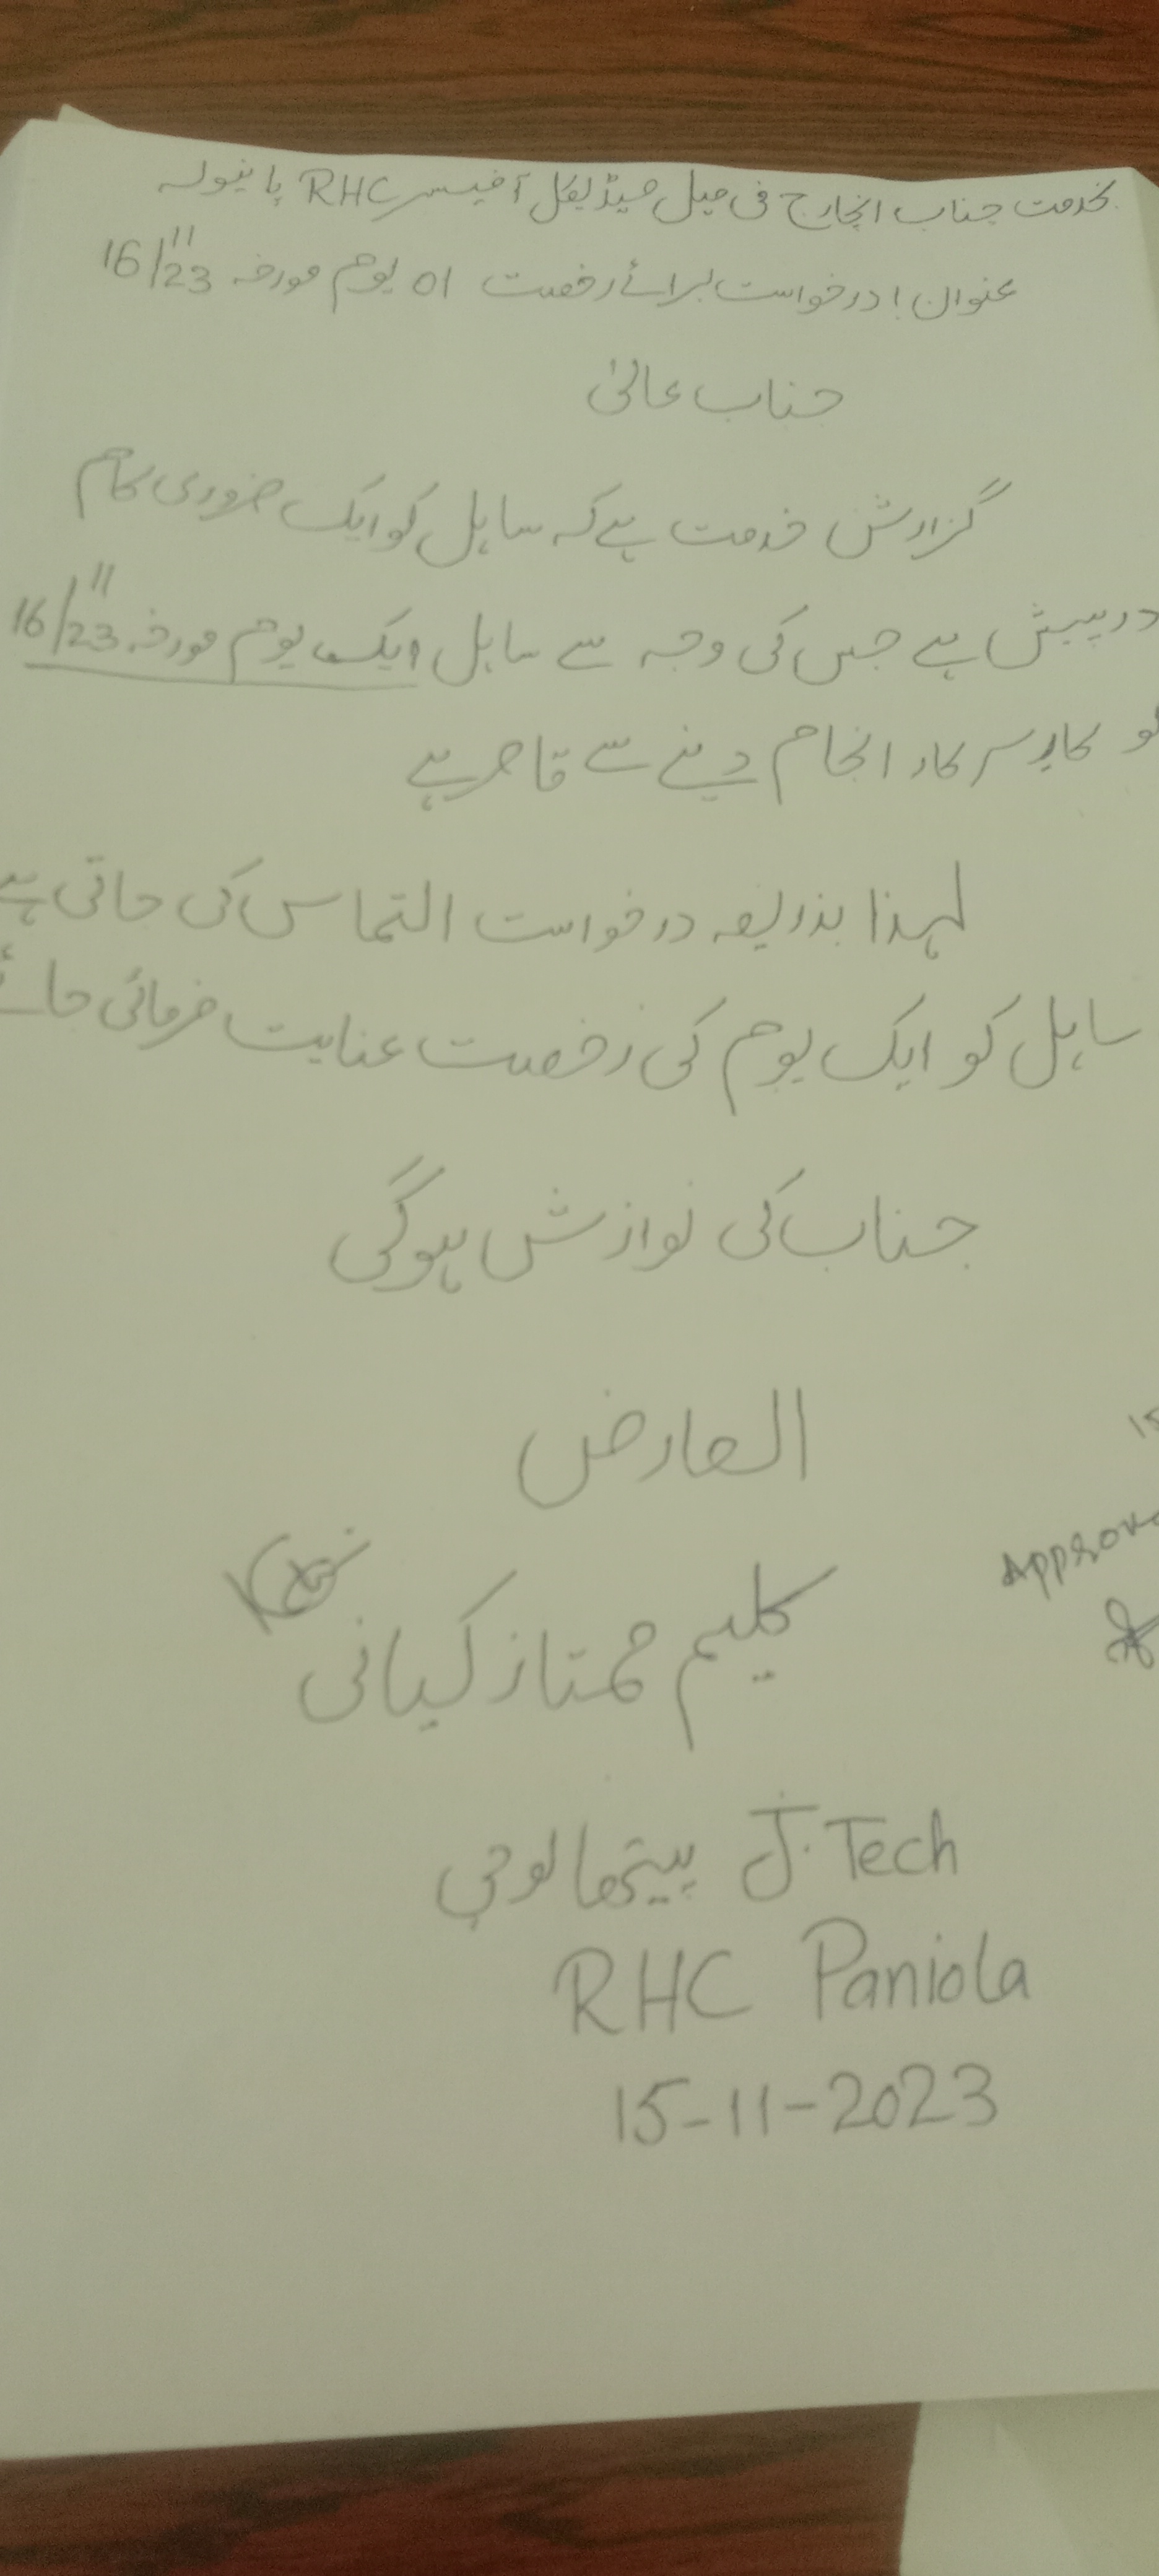 بخدمت جناب انچارج فی میل میڈیکل آفیسر RHC پانیولہ
عنوان! درخواست برائے رخصت 01 یوم مورخہ 16/11/23
جناب عالیٰ
گزارش خدمت ہے کہ سایل کو ایک ضروری کام
درپیش ہے جس کی وجہ سے سایل ایک یوم مورخہ 16/11/23
کو کارِ سرکار انجام دینے سے قاصر ہے
لہذا بذریعہ درخواست التماس کی جاتی ہے
سایل کو ایک یوم کی رخصت عنایت فرمائی جائے
جناب کی نوازش ہوگی
العارض
کلیم ممتاز کیانی
J.Tech پیتھالوجی
RHC Paniola
15-11-2023